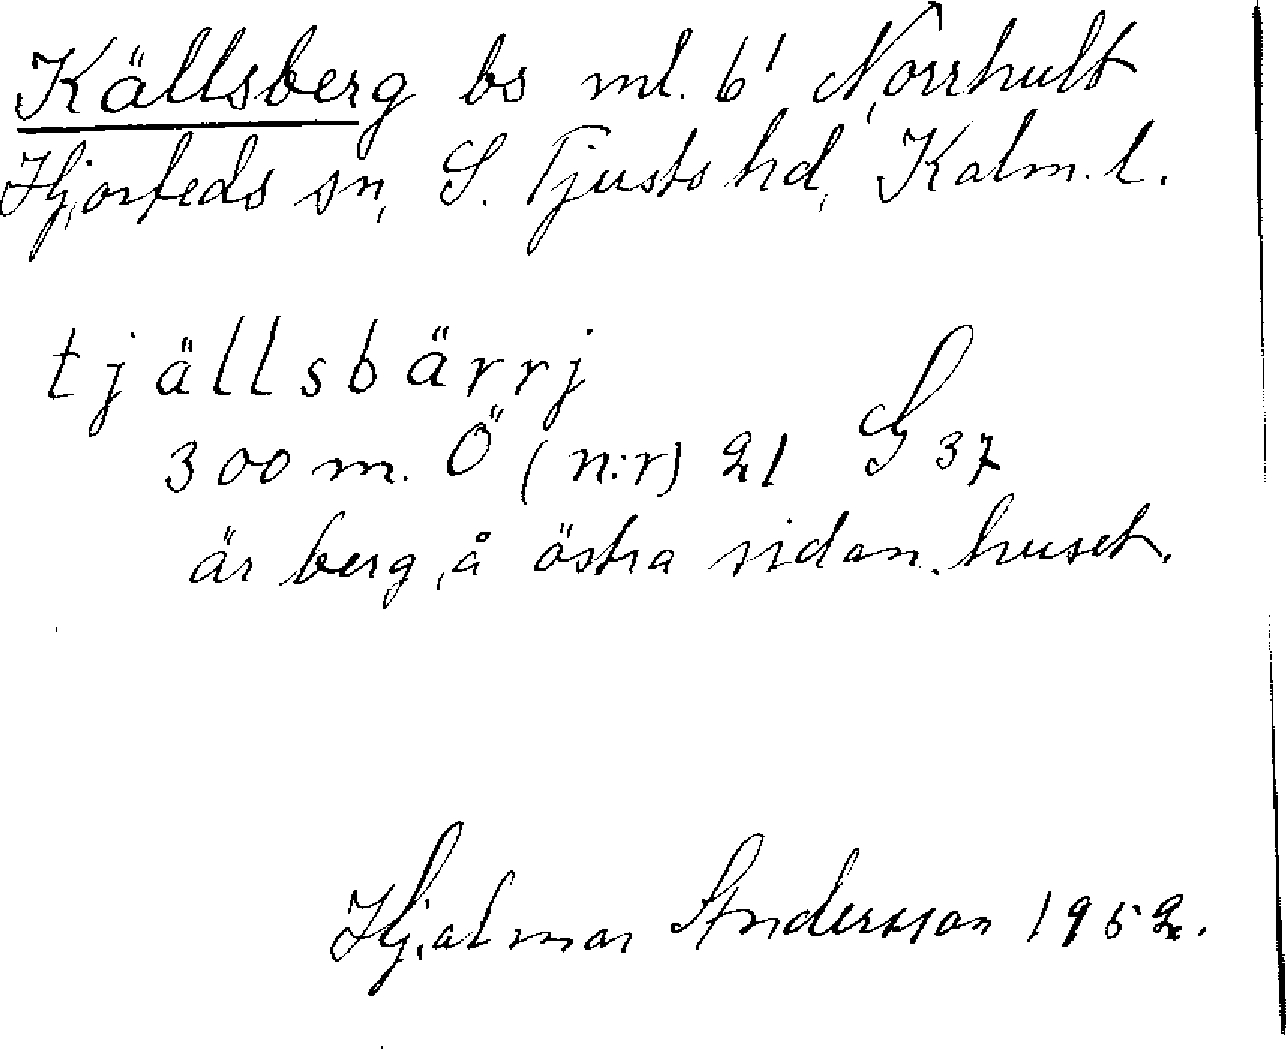 Källsberg bs ml. b' Norrhult
Hjorteds sn, S. Tjusts hd, Kalm. l.
tjällsbärrj
300 m. Ö (n:r) 21 G 37
är berg, å östra sidan huset.
Hjalmar Andersson 1952.